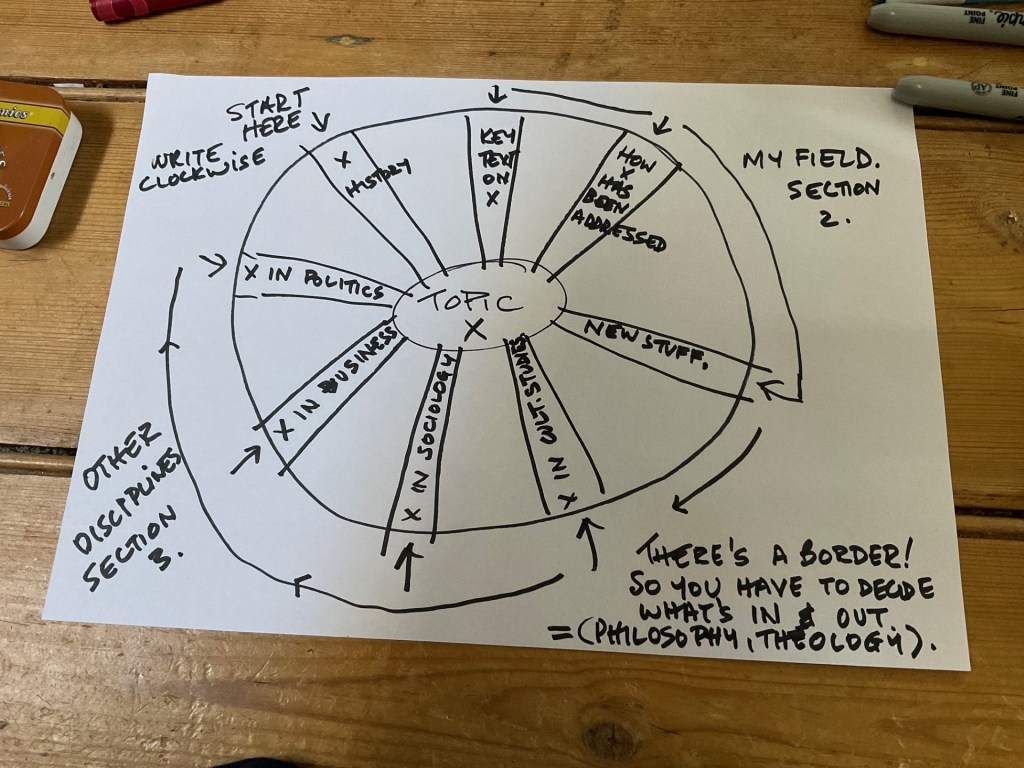 START
HERE
WRITE
CLOCKWISE
X
HISTORY
KEY
TEXT
ON
X
HOW
X
HAS
BEEN
ADDRESSED
MY FIELD.
SECTION
2.
NEW STUFF.
TOPIC
X
X IN CULT. STUDIES
X IN SOCIOLOGY
X IN BUSINESS
X IN POLITICS
OTHER
DISCIPLINES
SECTION
3.
THERE'S A BORDER!
SO YOU HAVE TO DECIDE
WHAT'S IN & OUT.
=(PHILOSOPHY, THEOLOGY).
FINE
POINT
FINE
POINT
AP